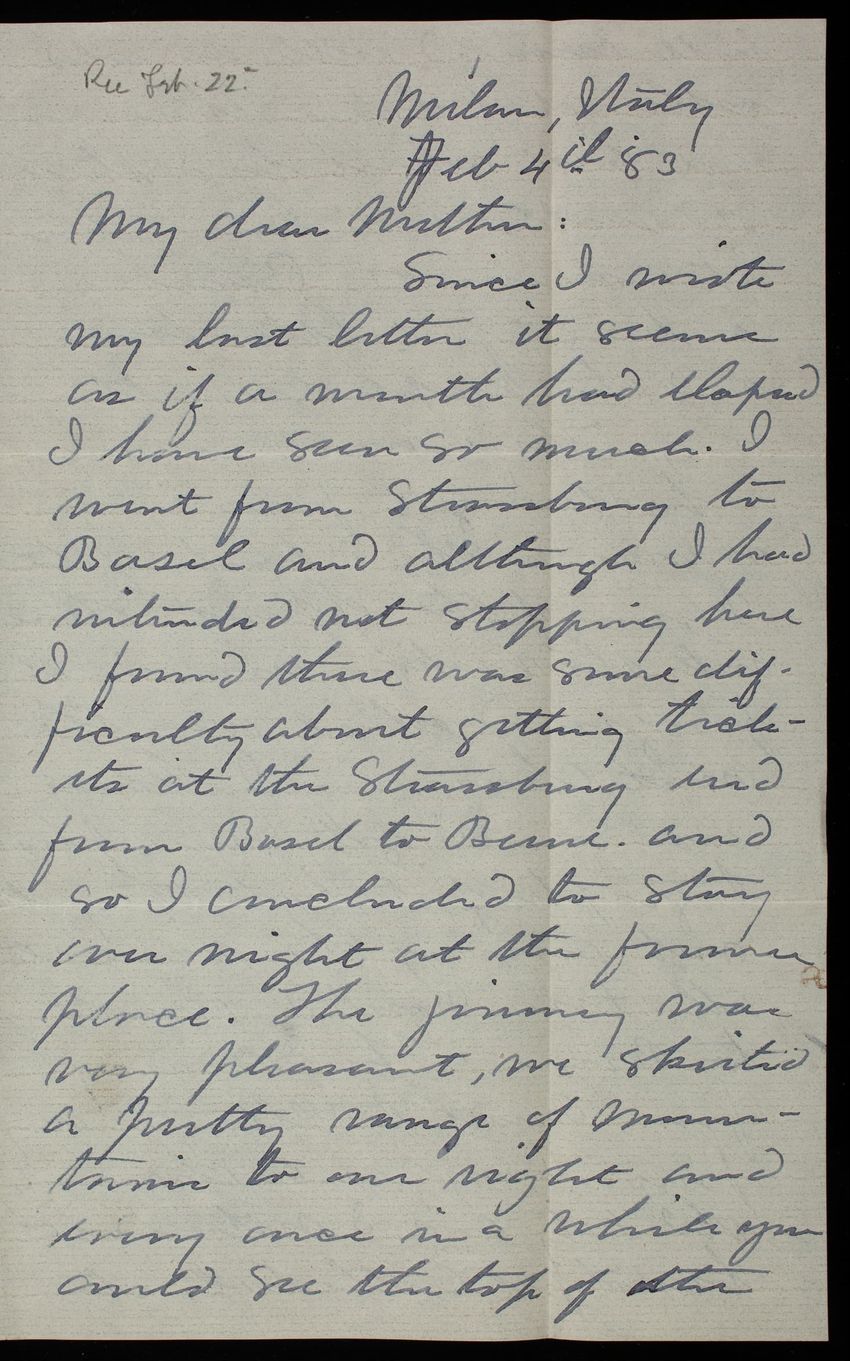 Rec Feb. 22.
Milan, Italy
Feb 4th '83
My dear Mother:
Since I wrote
my last letter it seems
as if a month had elapsed
I have seen so much. I
went from Strassburg to
Basel and although I had
intended not stopping here
I found there was some dif-
ficulty about getting tick-
ets at the Strassburg end
from Basel to Berne. and
so I concluded to stay
over night at the former
place. The journey was
very pleasant, we skirted
a pretty range of moun-
tains to our right and
every once in a while you
could see the top of the